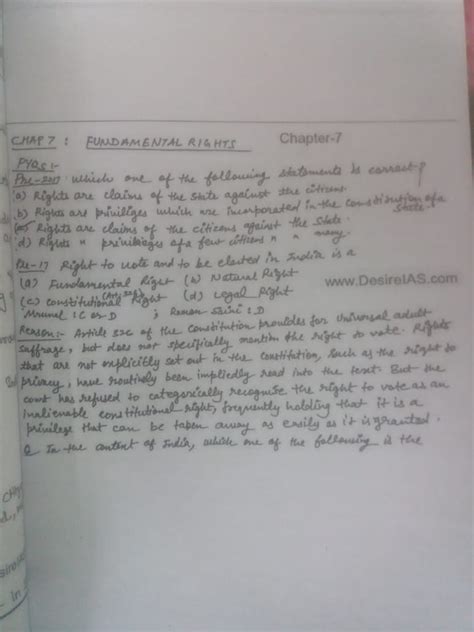 CHAP 7 : FUNDAMENTAL RIGHTS Chapter-7
PYQs:-
Pre-2017 Which one of the following statements is correct?
(a) Rights are claims of the state against the citizens.
b) Rights are priviliges which are incorporated in the constitution of a state.
(c) Rights are claims of the citizens against the State.
d) Rights " priviliages of a few citizens " " many.
Pre-17 Right to vote and to be elected in India is a
(a) Fundamental Right (b) Natural Right
www.DesireIAS.com
(c) constitutional Right (d) Legal Right
Mrunal : C or D ; : D
Reason:- Article 326 of the Constitution provides for universal adult
suffrage, but does not specifically mention the right to vote. Rights
that are not explicitly set out in the Constitution, such as the right to
privacy, have routinely been impliedly read into the text. But the
court has refused to categorically recognise the right to vote as an
inalienable constitutional right, frequently holding that it is a
privilege that can be taken away as easily as it is granted.
Q In the context of India, which one of the following is the